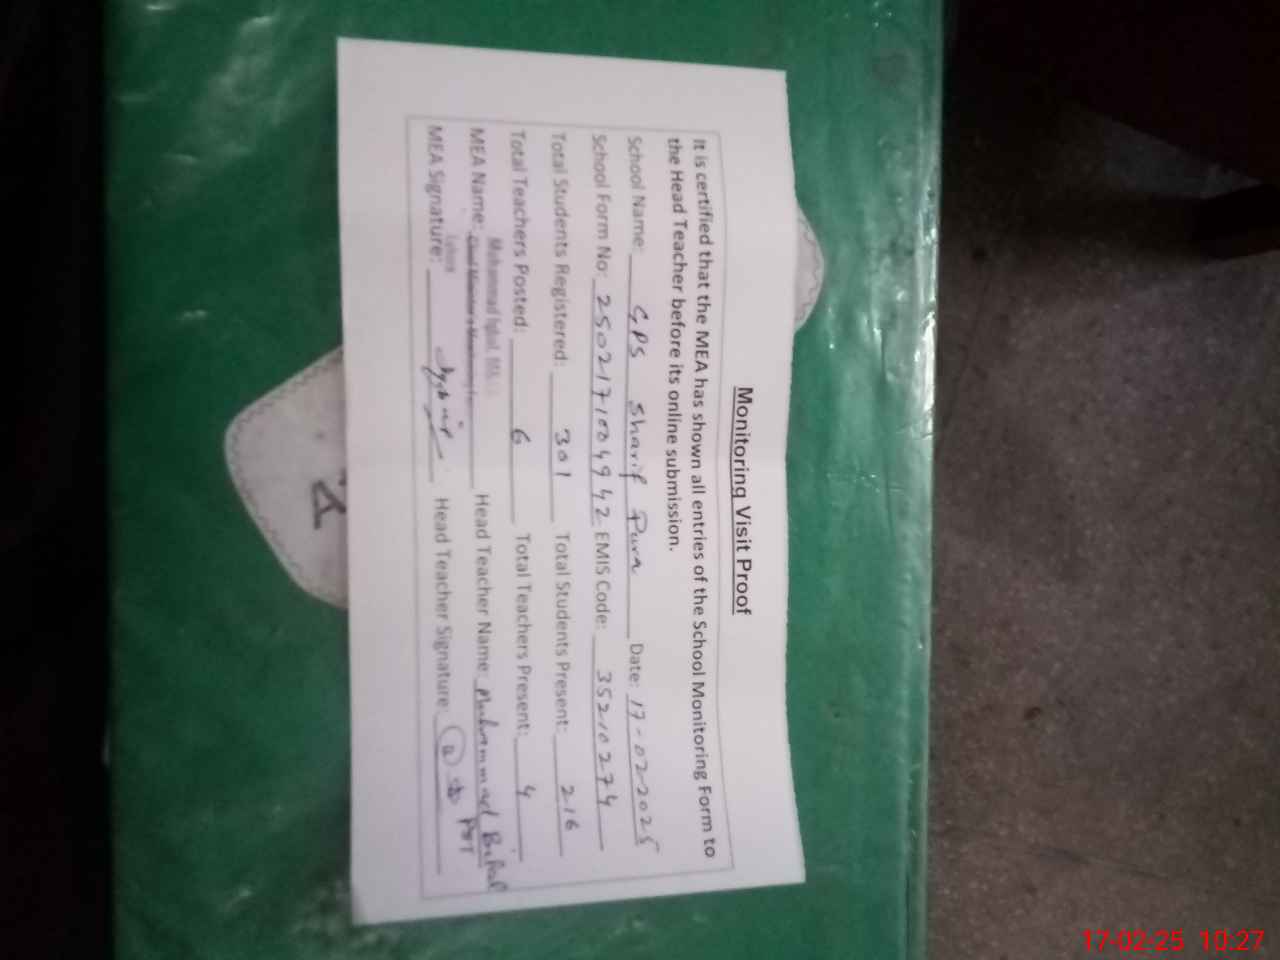 Monitoring Visit Proof
It is certified that the MEA has shown all entries of the School Monitoring Form to
the Head Teacher before its online submission.
School Name: GPS Sharif Pura Date: 17-02-2025
School Form No: 2502171004942 EMIS Code: 35210274
Total Students Registered: 301 Total Students Present: 216
Total Teachers Posted: 6 Total Teachers Present: 4
Muhammad Iqbal
MEA Name: Head Teacher Name: Muhammad
MEA Signature: Head Teacher Signature: PST
A
17-02-25 10:27